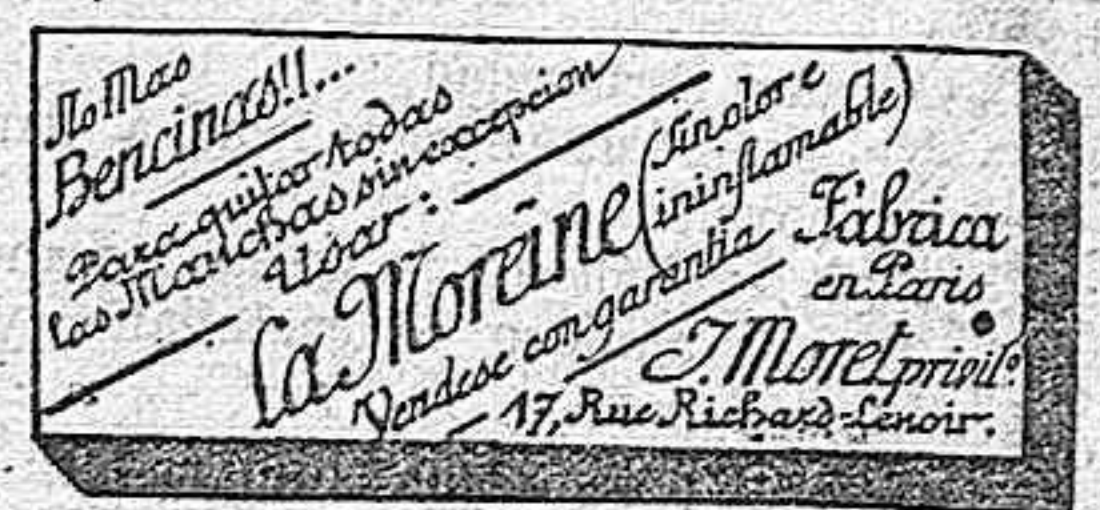 No Mas
Bencinas!!...
Para quitar todas
las Manchas sin excepcion
Usar:
La Moreïne (sin olor e
ininflamable)
Vendese con garantia
Fábrica
en Paris
J. Moret privil.º
17, Rue Richard-Lenoir.